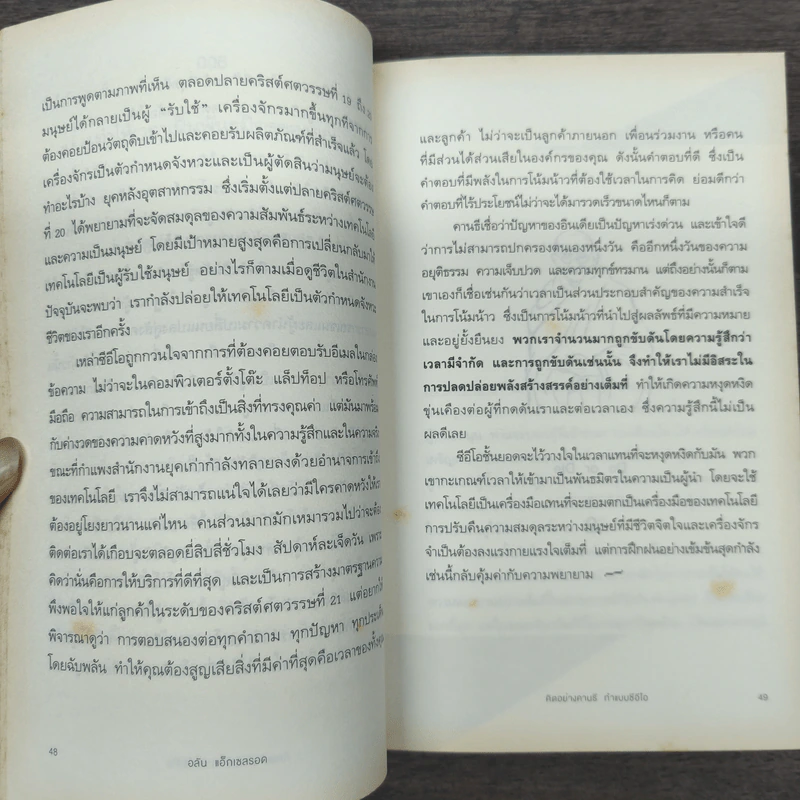 เป็นการพูดตามภาพที่เห็น ตลอดปลายคริสต์ศตวรรษที่ 19 ถึง
มนุษย์ได้กลายเป็นผู้ “รับใช้” เครื่องจักรมากขึ้นทุกที
ต้องคอยป้อนวัตถุดิบเข้าไปและคอยรับผลิตภัณฑ์ที่สำเร็จแล้ว โดย
เครื่องจักรเป็นตัวกำหนดจังหวะและเป็นผู้ตัดสินว่ามนุษย์จะต้อง
ทำอะไรบ้าง ยุคหลังอุตสาหกรรม ซึ่งเริ่มตั้งแต่ปลายคริสต์ศตวรรษ
ที่ 20 ได้พยายามที่จะจัดสมดุลของความสัมพันธ์ระหว่างเทคโนโลยี
และความเป็นมนุษย์ โดยมีเป้าหมายสูงสุดคือการเปลี่ยนกลับมาให้
เทคโนโลยีเป็นผู้รับใช้มนุษย์ อย่างไรก็ตามเมื่อดูชีวิตในสำนักงาน
ปัจจุบันจะพบว่า เรากำลังปล่อยให้เทคโนโลยีเป็นตัวกำหนดจังหวะ
ชีวิตของเราอีกครั้ง
เหล่าซีอีโอถูกกวนใจจากการที่ต้องคอยตอบรับอีเมลในกล่อง
ข้อความ ไม่ว่าจะในคอมพิวเตอร์ตั้งโต๊ะ แล็ปท็อป หรือโทรศัพท์
มือถือ ความสามารถในการเข้าถึงเป็นสิ่งที่ทรงคุณค่า แต่มันมาพร้อม
กับค่างวดของความคาดหวังที่สูงมากทั้งในความรู้สึกและในความจริง
ขณะที่กำแพงสำนักงานยุคเก่ากำลังทลายลงด้วยอำนาจการเข้าถึง
ของเทคโนโลยี เราจึงไม่สามารถแน่ใจได้เลยว่ามีใครคาดหวังให้เรา
ต้องอยู่โยงยาวนานแค่ไหน คนส่วนมากมักเหมารวมไปว่าจะต้อง
ติดต่อเราได้เกือบจะตลอดยี่สิบสี่ชั่วโมง สัปดาห์ละเจ็ดวัน เพราะ
คิดว่านั่นคือการให้บริการที่ดีที่สุด และเป็นการสร้างมาตรฐานความ
พึงพอใจให้แก่ลูกค้าในระดับของคริสต์ศตวรรษที่ 21 แต่อยากให้
พิจารณาดูว่า การตอบสนองต่อทุกคำถาม ทุกปัญหา ทุกประเด็น
โดยฉับพลัน ทำให้คุณต้องสูญเสียสิ่งที่มีค่าที่สุดคือเวลาของทั้งคุณ
48
อลัน แอ็กเซลรอด
และลูกค้า ไม่ว่าจะเป็นลูกค้าภายนอก เพื่อนร่วมงาน หรือคน
ที่มีส่วนได้ส่วนเสียในองค์กรของคุณ ดังนั้นคำตอบที่ดี ซึ่งเป็น
คำตอบที่มีพลังในการโน้มน้าวที่ต้องใช้เวลาในการคิด ย่อมดีกว่า
คำตอบที่ไร้ประโยชน์ไม่ว่าจะได้มารวดเร็วขนาดไหนก็ตาม
คานธีเชื่อว่าปัญหาของอินเดียเป็นปัญหาเร่งด่วน และเข้าใจดี
ว่าการไม่สามารถปกครองตนเองหนึ่งวัน คืออีกหนึ่งวันของความ
อยุติธรรม ความเจ็บปวด และความทุกข์ทรมาน แต่ถึงอย่างนั้นก็ตาม
เขาเองก็เชื่อเช่นกันว่าเวลาเป็นส่วนประกอบสำคัญของความสำเร็จ
ในการโน้มน้าว ซึ่งเป็นการโน้มน้าวที่นำไปสู่ผลลัพธ์ที่มีความหมาย
และอยู่ยั้งยืนยง พวกเราจำนวนมากถูกขับดันโดยความรู้สึกว่า
เวลามีจำกัด และการถูกขับดันเช่นนั้น จึงทำให้เราไม่มีอิสระใน
การปลดปล่อยพลังสร้างสรรค์อย่างเต็มที่ ทำให้เกิดความหงุดหงิด
ขุ่นเคืองต่อผู้ที่กดดันเราและต่อเวลาเอง ซึ่งความรู้สึกนี้ไม่เป็น
ผลดีเลย
ซีอีโอชั้นยอดจะไว้วางใจในเวลาแทนที่จะหงุดหงิดกับมัน พวก
เขากะเกณฑ์เวลาให้เข้ามาเป็นพันธมิตรในความเป็นผู้นำ โดยจะใช้
เทคโนโลยีเป็นเครื่องมือแทนที่จะยอมตกเป็นเครื่องมือของเทคโนโลยี
การปรับคืนความสมดุลระหว่างมนุษย์ที่มีชีวิตจิตใจและเครื่องจักร
จำเป็นต้องลงแรงกายแรงใจเต็มที่ แต่การฝึกฝนอย่างเข้มข้นสุดกำลัง
เช่นนี้กลับคุ้มค่ากับความพยายาม
คิดอย่างคานธี ทำแบบซีอีโอ
49